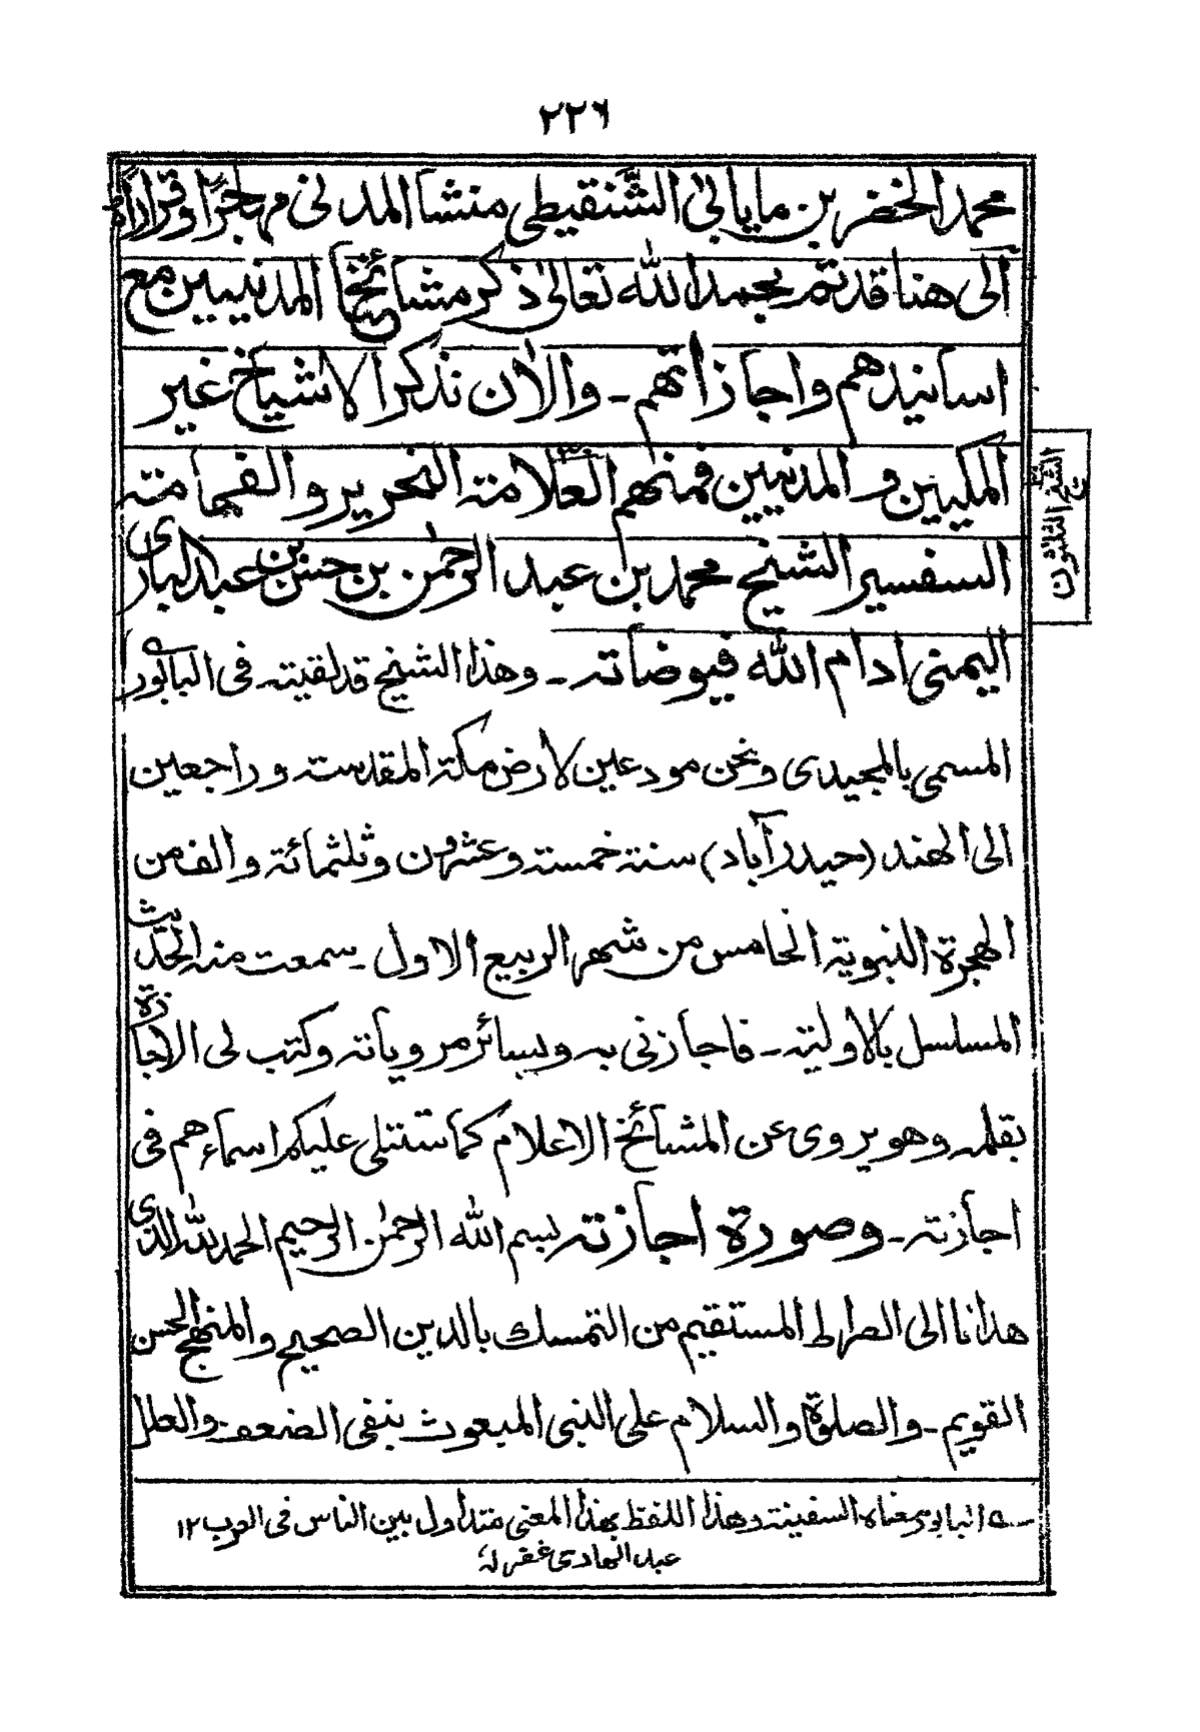 ٢٢٦
محمد الخضر بن مايابىٰ الشَّنقيطى منشأ المدنى مهاجرًا وقرارًا
الى هنا قد تم بحمد الله تعالىٰ ذكر مشائخنا المدنيين مع
اسانيدهم واجازاتهم ـ والاٰن نذكر الاشياخ غير
المكيين والمدنيين فمنهم العلامة النحرير والفهامة
السفسير الشيخ محمد بن عبد الرحمٰن بن حسن بن عبد البارى
اليمنى ادام الله فيوضاته ـ وهذا الشيخ قد لقيته فى البابور
المسمى بالمجيدى ونحن مودعين لارض مكة المقدسة وراجعين
الى الهند (حيدرآباد) سنة خمسة وعشرون وثلثمائة والف من
الهجرة النبوية الخامس من شهر الربيع الاول ـ سمعت منه الحديث
المسلسل بالاولية ـ فاجازنى به وبسائر مروياته وكتب لى الاجازة
بقلمه وهو يروى عن المشائخ الاعلام كما ستتلى عليكم اسماءهم فى
اجازته ـ وصورة اجازته بسم الله الرحمٰن الرحيم الحمد لله الذى
هدانا الى الصراط المستقيم من التمسك بالدين الصحيح والمنهج الحسن
القويم ـ والصلوة والسلام على النبى المبعوث بنفى الضعف والعلل
الشيخ الثلاثون
ـه البابور معناه السفينة وهذا اللفظ بهذا المعنى متداول بين الناس فى العرب ١٢
عبد الهادى غفر لهٗ